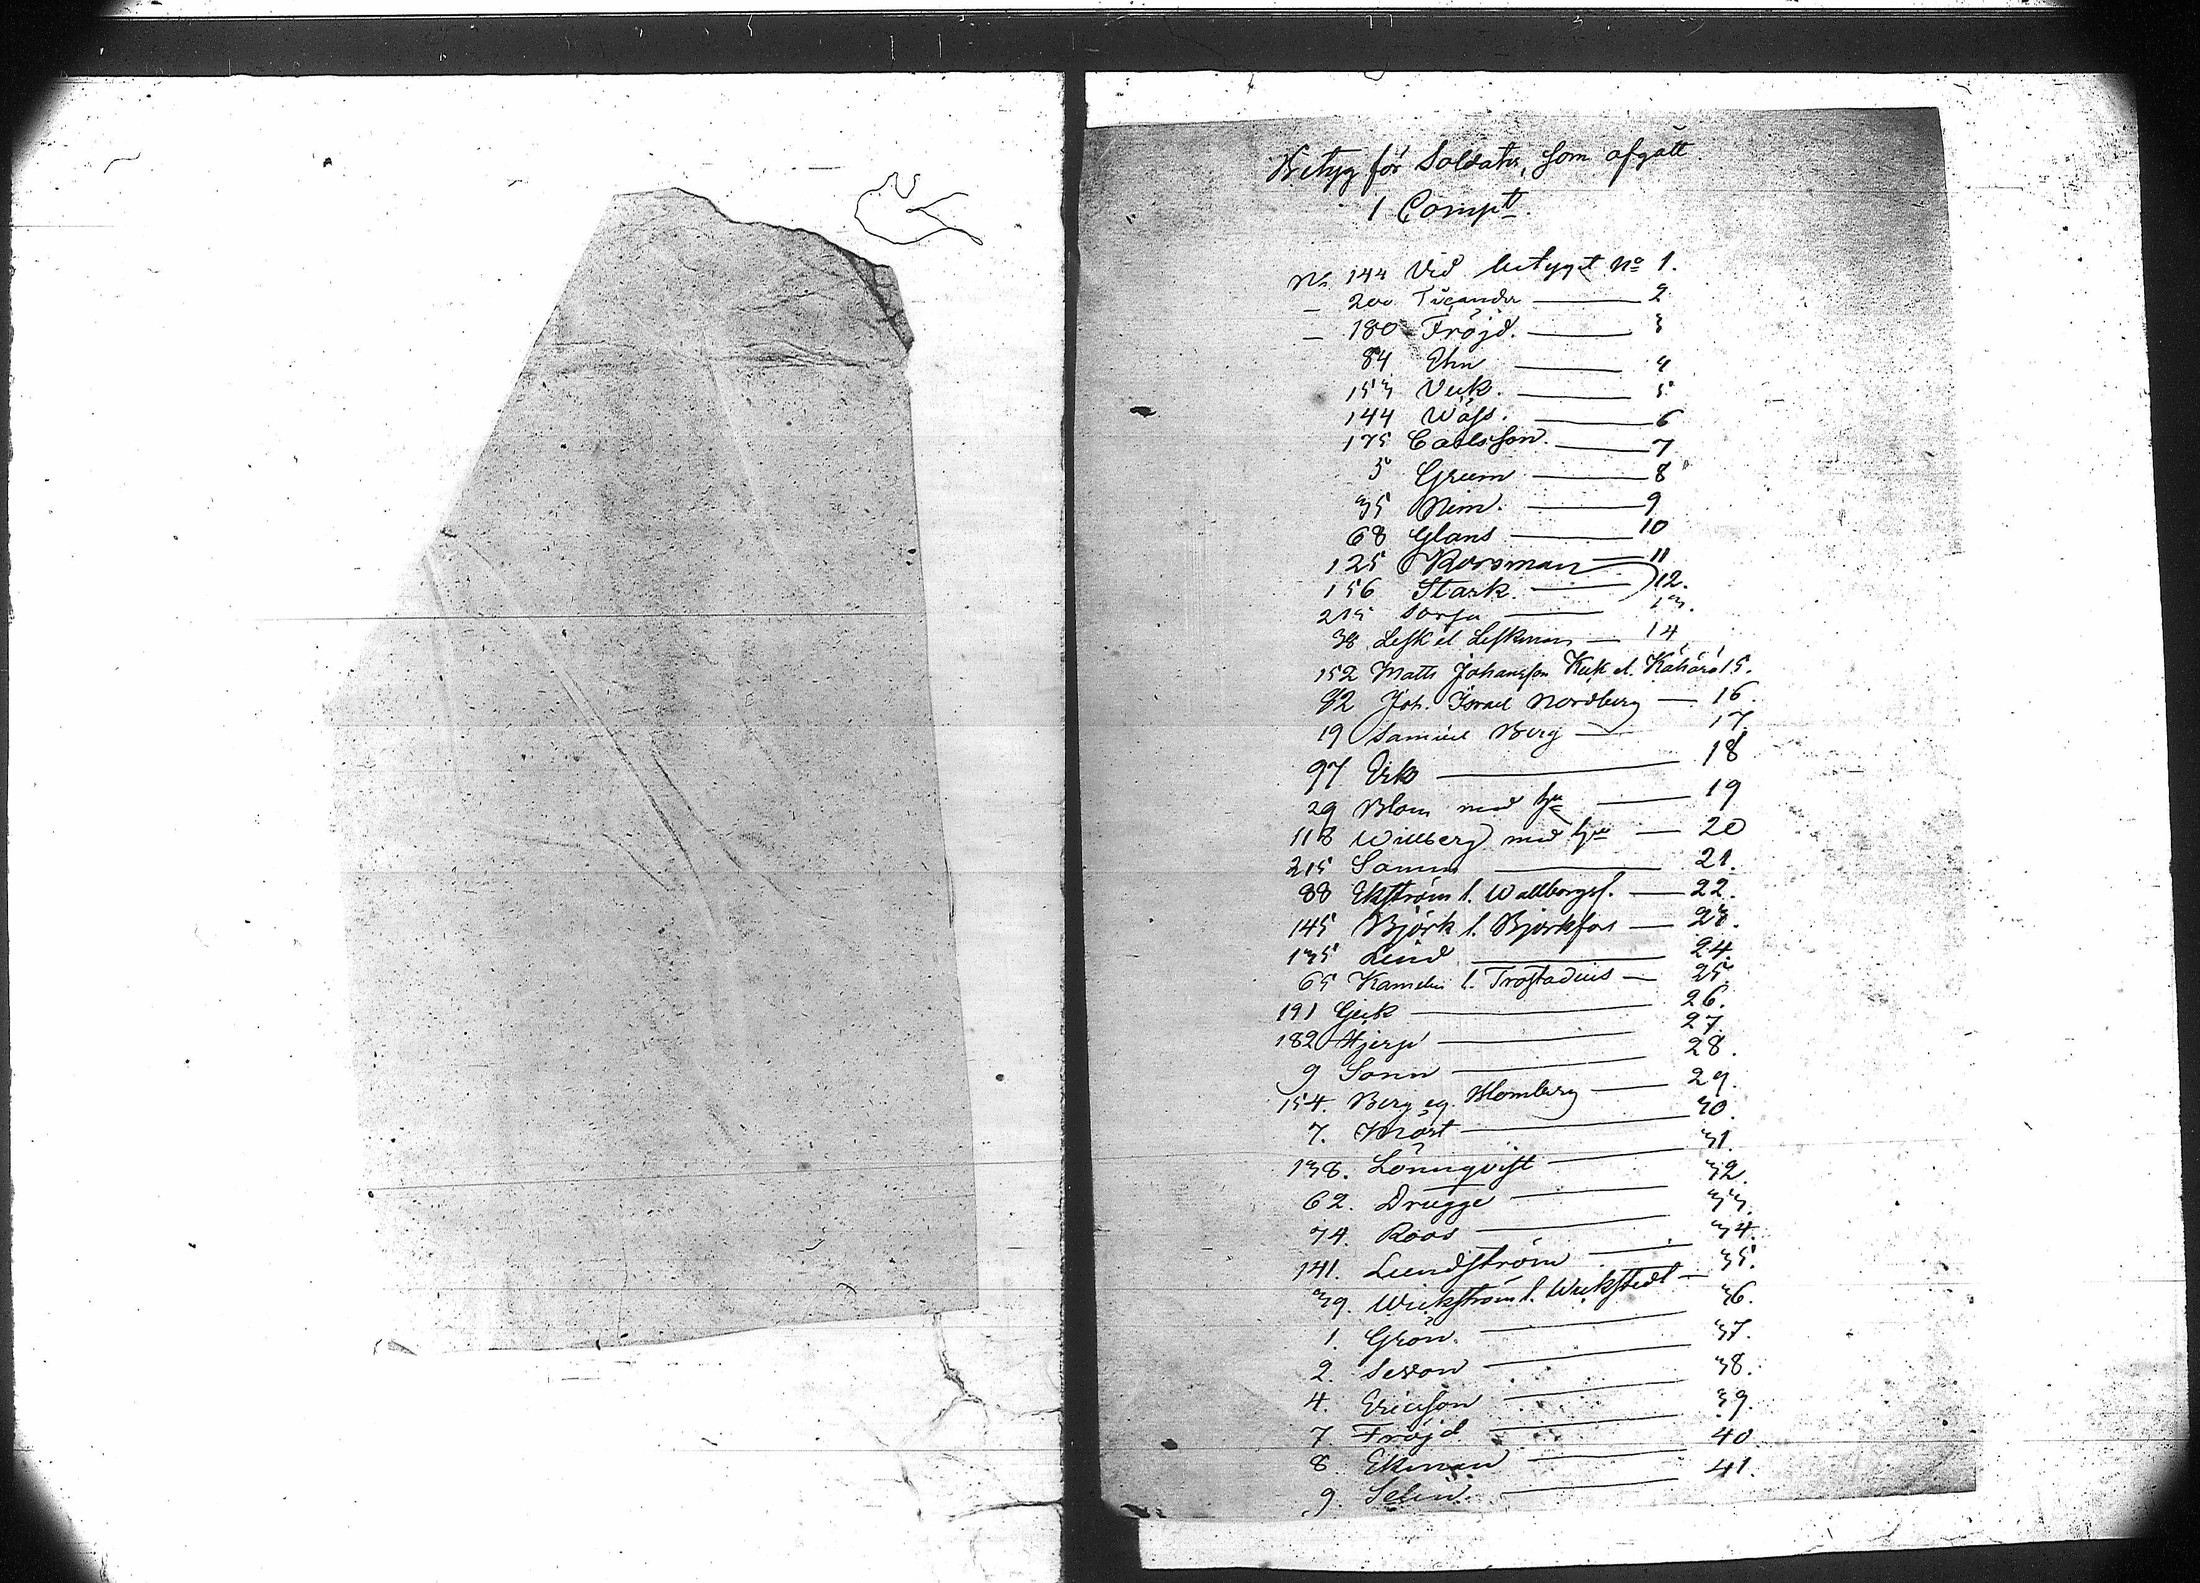 Betyg för Soldater, som afgått.
1 Compt.
No 144 Vid betyget No 1.
– 200 Ticander — 2
– 180 Fröjd. — 3
84 Ehn — 4
153 Veck. — 5
144 Wäss. — 6
175 Carlsson. — 7
5 Green — 8
35 Brim. — 9
68 Glans — 10
125 Korsman — 11
156 Stark. — 12.
215 — 13.
38 Lesk el Leskman — 14
152 Matts Johansson Kuk el. 15.
92 Joh. Israel Nordberg — 16.
19 Samuel Berg — 17
97 Erk — 18
29 Blom med — 19
118 Willberg med — 20
215 — 21.
88 Ekström l. Wallborgsf. — 22.
145 Björk l. Björkfors — 23.
135 Lind — 24.
65 l. Trastadius — 25.
191 — 26.
182 Hjerpe — 27.
9 Sonn — 28.
154. Berg eg. Blomberg — 29.
7. Mört — 30.
138. Lönnqvist — 31.
62. Drugge — 32.
74. Roos — 33.
141. Lundström — 34.
39. Wickström l. Wickstedt — 35.
1. Grön. — 36.
2. — 37.
4. Ericsson — 38.
7. Fröjd — 39.
8. Ekman — 40.
9. Selin. — 41.